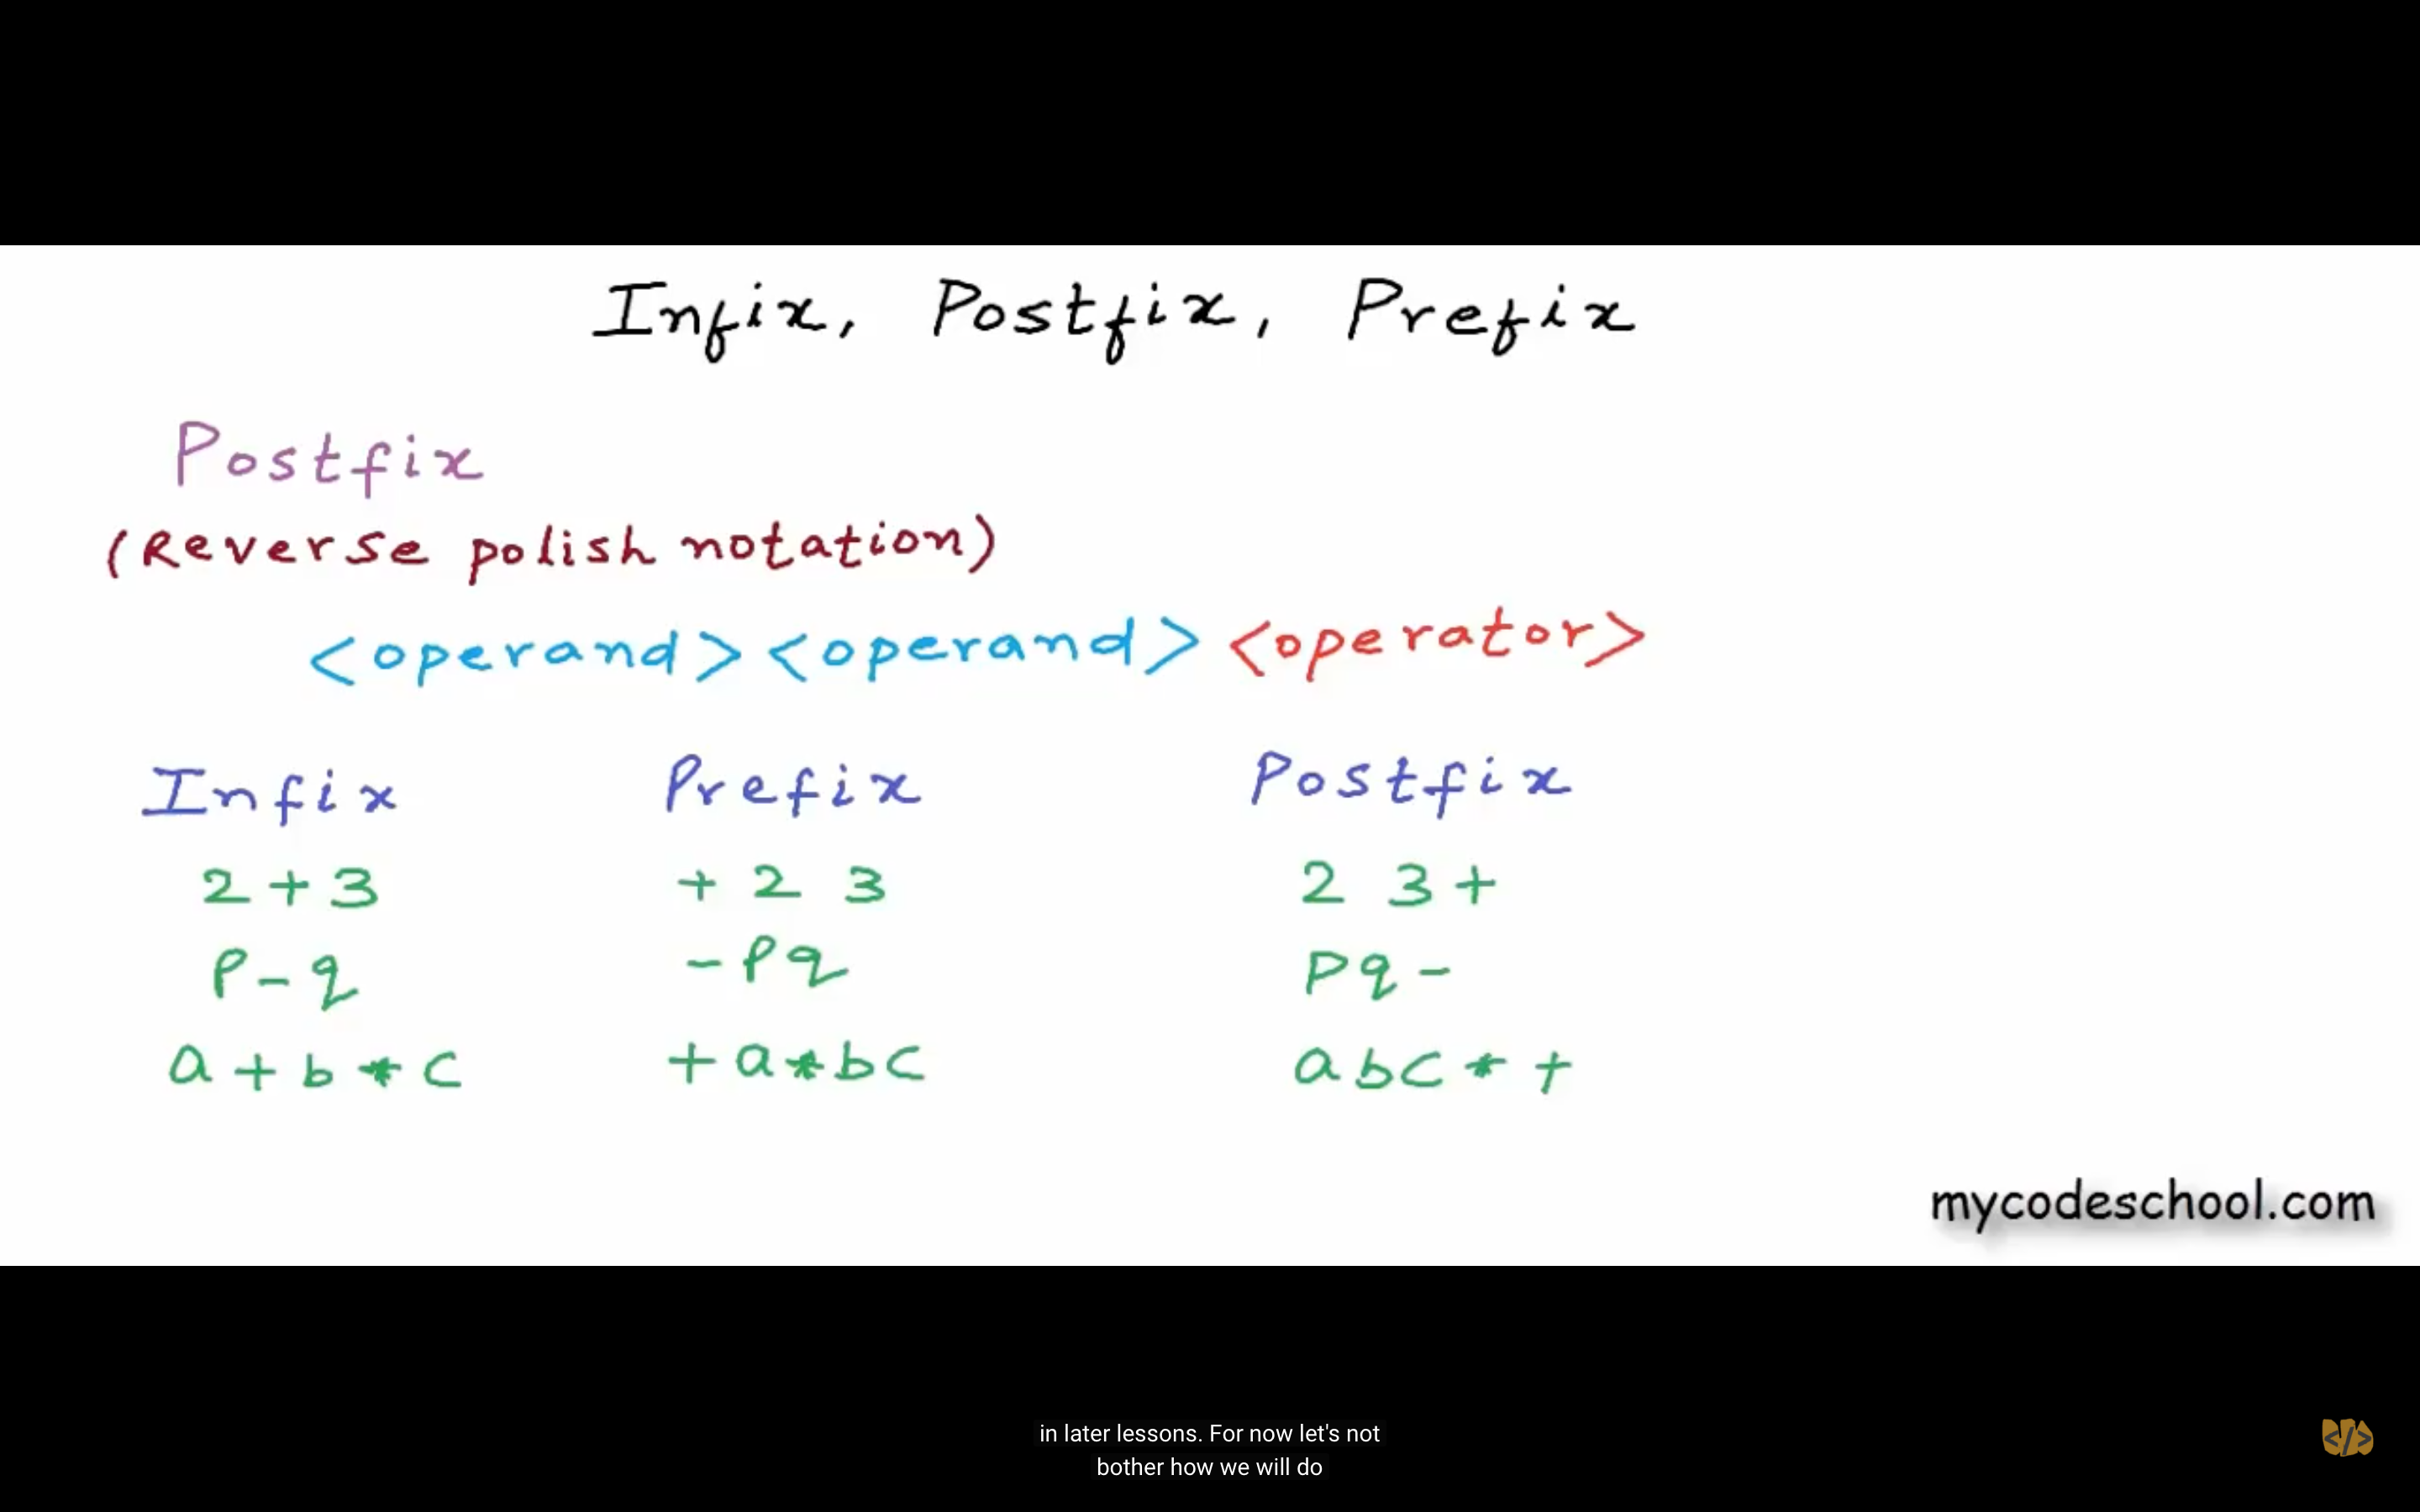 Infix, Postfix, Prefix
Postfix
(Reverse polish notation)
<operand><operand><operator>
Infix Prefix Postfix
2+3 + 2 3 2 3+
P-q -Pq Pq-
a+b*c +a*bc abc*+
mycodeschool.com
in later lessons. For now let's not
bother how we will do
</>